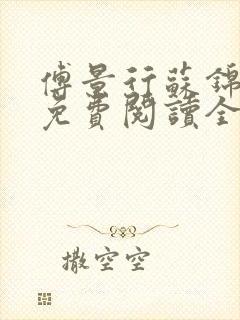 傅景行蘇錦
免費閱讀全
撒空空